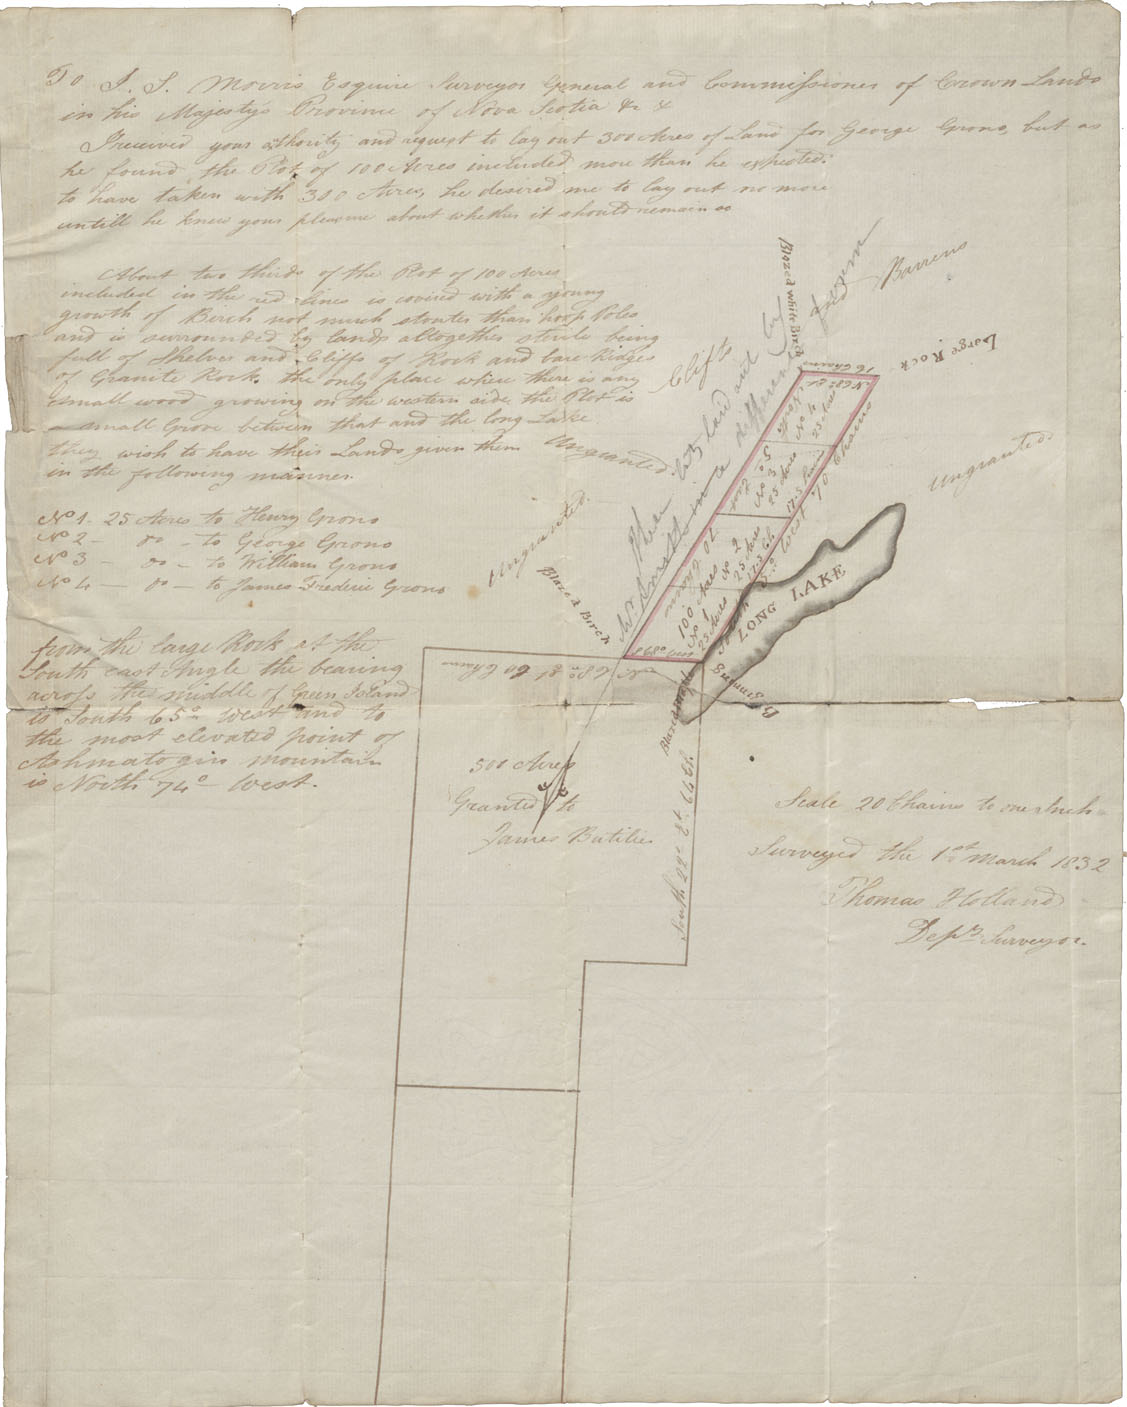 To I. S. Morris Esquire Surveyor General and Commissioner of Crown Lands
in his Majestys Province of Nova Scotia &c &
I received your athority and request to lay out 300 Acres of Land for George Grono, but as
he found the Plot of 100 Acres included more than he expected
to have taken with 300 Acres, he desired me to lay out no more
untill he knew your pleasure about whether it should remain so
About two thirds of the Plot of 100 Acres
included in the red lines is covired with a young
growth of Berch not much stouter than hoop Poles
and is surrounded by lands altogether sterile being
full of Shelves and Cliffs of Rock and bare Ridges
of Granite Rock. the only place where there is any
small wood growing on the western side the Plot is
a small Grove between that and the long Lake
they wish to have their Lands given them
in the following manner.
No 1. 25 Acres to Henry Grono
No 2 - Do - to George Grono
No 3 - Do - to William Grono
No 4 - Do - to James Frederic Grono
from the large Rock at the
South east Angle the bearing
across the middle of Green Island
is South 65° West and to
the most elevated point of
Ashmatogin mountain
is North 74° West.
Blazed White Birch
Barrens
Large Rock
Clifts
Ungranted
Ungranted
Ungranted
16 Chains
No. 4
25 Acres
No 3
25 Acres
No 2
25 Acres
No 1
25 Acres
100 Acres
70 Chains
West 70 Chains
LONG LAKE
Blazed Birch
Beginning
60 Chains
500 Acres
Granted to
James Butilier
South 22° Et. 66 Ch
Scale 20 Chains to one Inch
Surveyed the 1st March 1832
Thomas Holland
Depy Surveyor.